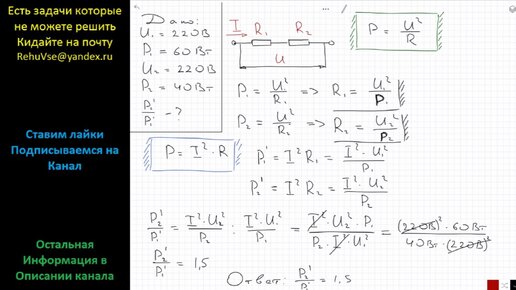 Есть задачи которые
не можете решить
Кидайте на почту
RehuVse@yandex.ru
Ставим лайки
Подписываемся на
Канал
Остальная
Информация в
Описании канала
Дано:
U₁ = 220В
P₁ = 60Вт
U₂ = 220В
P₂ = 40Вт
P₂'/P₁' - ?
I R₁ R₂
U
P = U²/R
P₁ = U₁²/R₁ => R₁ = U₁²/P₁
P₂ = U₂²/R₂ => R₂ = U₂²/P₂
P = I² · R
P₁' = I² R₁ = I² · U₁²/P₁
P₂' = I² R₂ = I² · U₂²/P₂
P₂'/P₁' = I² · U₂²/P₂ : I² · U₁²/P₁ = I² · U₂² · P₁/P₂ · I² · U₁² = (220В)² · 60Вт/40Вт · (220В)²
P₂'/P₁' = 1,5
Ответ: P₂'/P₁' = 1,5